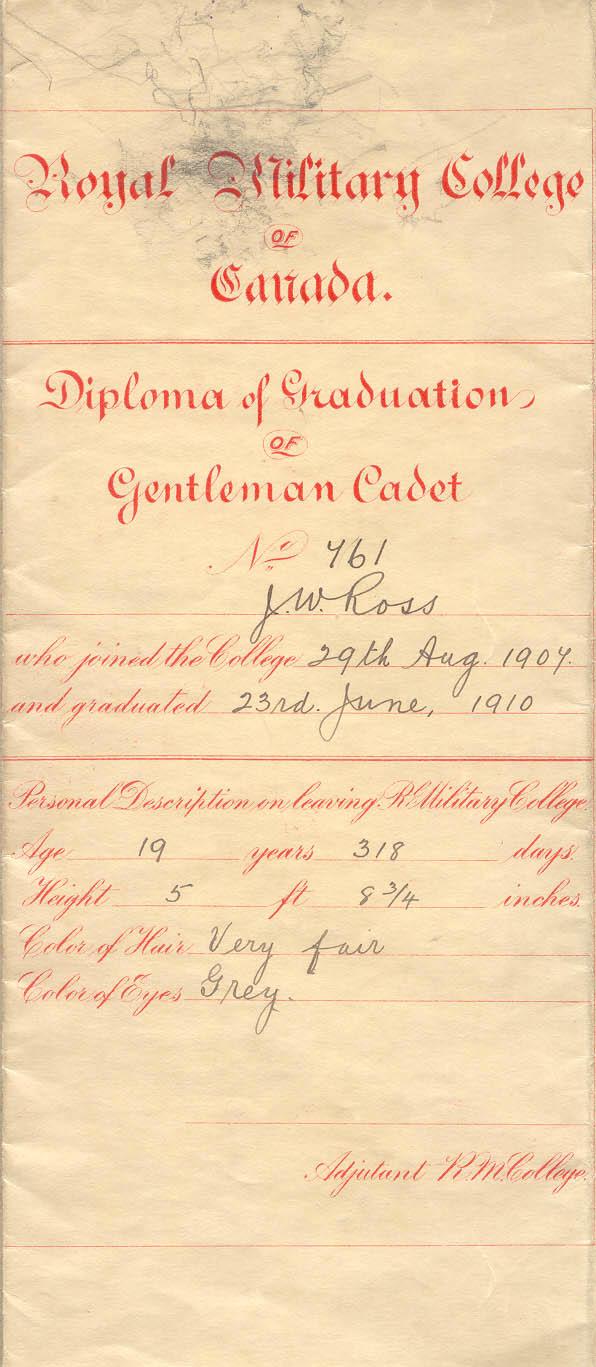 Royal Military College
OF
Canada.
Diploma of Graduation
OF
Gentleman Cadet
No 761
J.W. Ross
who joined the College 29th Aug. 1907.
and graduated 23rd. June, 1910
Personal Description on leaving R. Military College.
Age 19 years 318 days.
Height 5 ft 8 3/4 inches.
Color of Hair Very fair
Color of Eyes Grey.
Adjutant R.M. College.